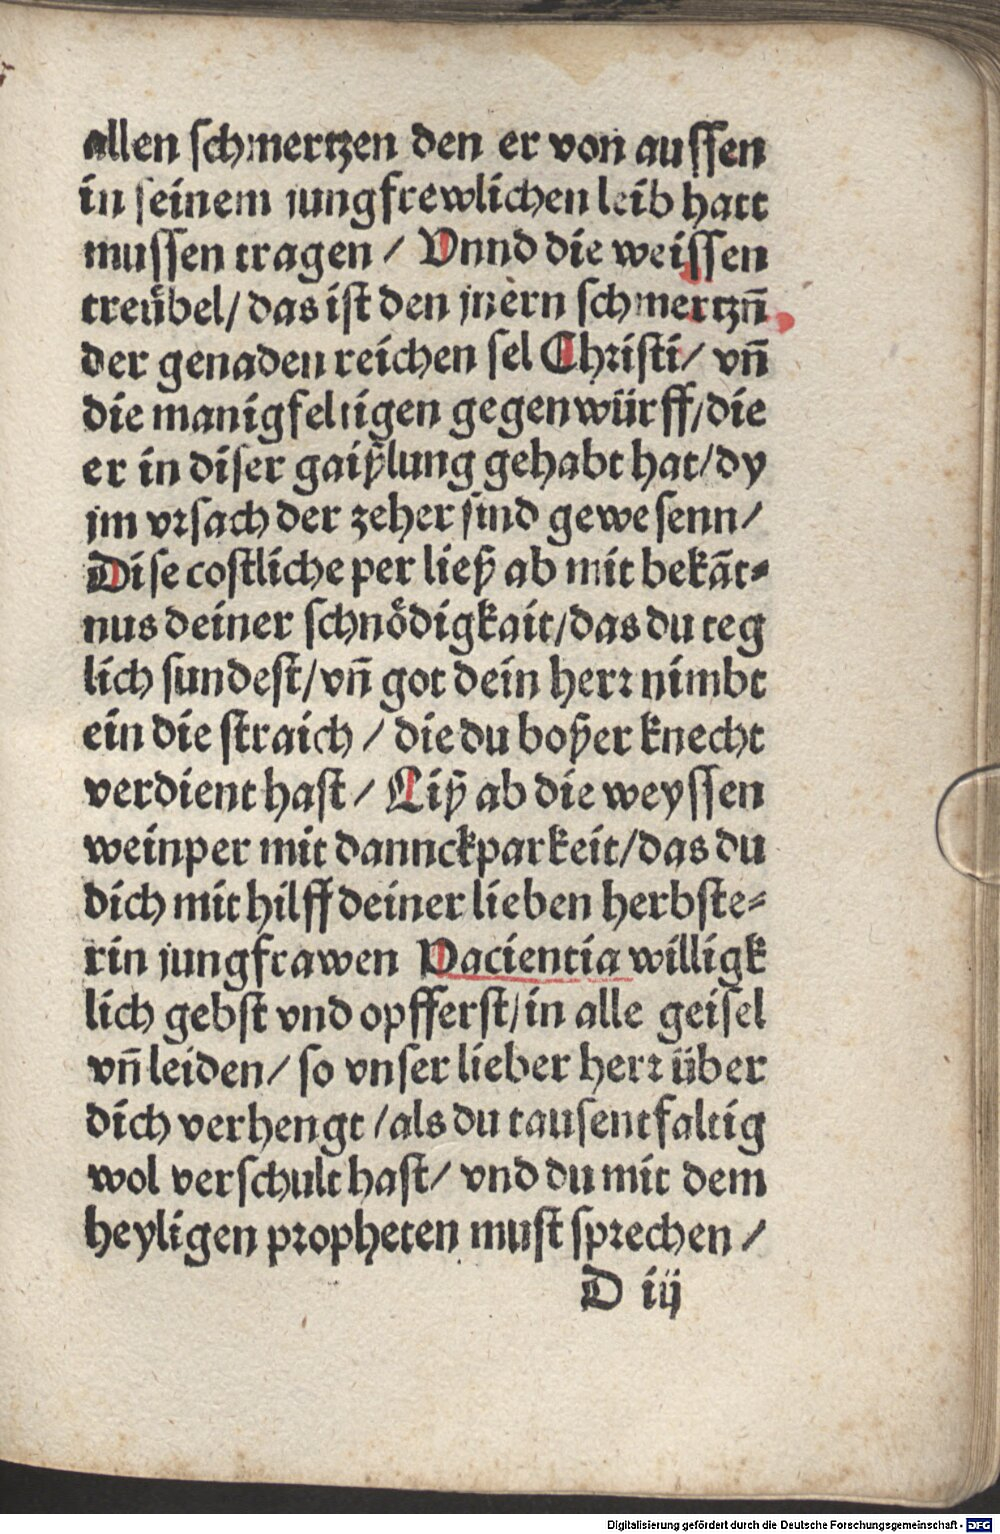 allen schmertzen den er von aussen
in seinem jungfrewlichen leib hatt
mussen tragen / Vnnd die weissen
treübel / das ist den jnern schmertzn̄
der genaden reichen sel Christi / vn̄
die manigfeltigen gegenwürff / die
er in diser gaißlung gehabt hat / dy
jm vrsach der zeher sind gewesenn /
Dise costliche per ließ ab mit bekāt⸗
nus deiner schnödigkait / das du teg
lich sundest / vn̄ got dein herr nimbt
ein die straich / die du boßer knecht
verdient hast / Liß ab die weyssen
weinper mit dannckparkeit / das du
dich mit hilff deiner lieben herbste⸗
rin jungfrawen Pacientia willigk
lich gebst vnd opfferst / in alle geisel
vn̄ leiden / so vnser lieber herr über
dich verhengt / als du tausentfaltig
wol verschult hast / vnd du mit dem
heyligen propheten must sprechen /
D iij
Digitalisierung gefördert durch die Deutsche Forschungsgemeinschaft - DFG